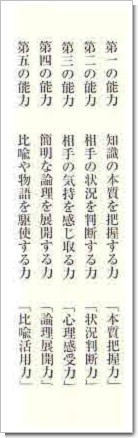 第一の能力　知識の本質を把握する力　「本質把握力」
第二の能力　相手の状況を判断する力　「状況判断力」
第三の能力　相手の気持を感じ取る力　「心理感受力」
第四の能力　簡明な論理を展開する力　「論理展開力」
第五の能力　比喩や物語を駆使する力　「比喩活用力」